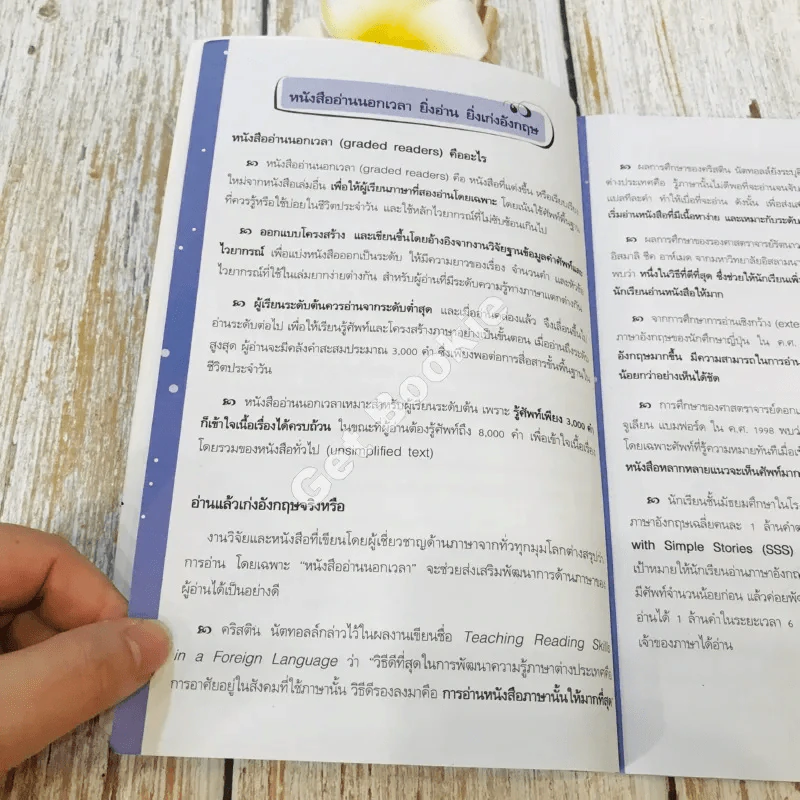 หนังสืออ่านนอกเวลา ยิ่งอ่าน ยิ่งเก่งอังกฤษ
หนังสืออ่านนอกเวลา (graded readers) คืออะไร
หนังสืออ่านนอกเวลา (graded readers) คือ หนังสือที่แต่งขึ้น หรือเรียบเรียง
ใหม่จากหนังสือเล่มอื่น เพื่อให้ผู้เรียนภาษาที่สองอ่านโดยเฉพาะ โดยเน้นใช้ศัพท์พื้นฐาน
ที่ควรรู้หรือใช้บ่อยในชีวิตประจำวัน และใช้หลักไวยากรณ์ที่ไม่ซับซ้อนเกินไป
ออกแบบโครงสร้าง และเขียนขึ้นโดยอ้างอิงจากงานวิจัยฐานข้อมูลคำศัพท์และ
ไวยากรณ์ เพื่อแบ่งหนังสือออกเป็นระดับ ให้มีความยาวของเรื่อง จำนวนคำ และหัวข้อ
ไวยากรณ์ที่ใช้ในเล่มยากง่ายต่างกัน สำหรับผู้อ่านที่มีระดับความรู้ทางภาษาแตกต่างกัน
ผู้เรียนระดับต้นควรอ่านจากระดับต่ำสุด และเมื่ออ่านได้คล่องแล้ว จึงเลื่อนขึ้นไป
อ่านระดับต่อไป เพื่อให้เรียนรู้ศัพท์และโครงสร้างภาษาอย่างเป็นขั้นตอน เมื่ออ่านถึงระดับ
สูงสุด ผู้อ่านจะมีคลังคำสะสมประมาณ 3,000 คำ ซึ่งเพียงพอต่อการสื่อสารขั้นพื้นฐานใน
ชีวิตประจำวัน
หนังสืออ่านนอกเวลาเหมาะสำหรับผู้เรียนระดับต้น เพราะ รู้ศัพท์เพียง 3,000 คำ
ก็เข้าใจเนื้อเรื่องได้ครบถ้วน ในขณะที่ผู้อ่านต้องรู้ศัพท์ถึง 8,000 คำ เพื่อเข้าใจเนื้อเรื่อง
โดยรวมของหนังสือทั่วไป (unsimplified text)
อ่านแล้วเก่งอังกฤษจริงหรือ
งานวิจัยและหนังสือที่เขียนโดยผู้เชี่ยวชาญด้านภาษาจากทั่วทุกมุมโลกต่างสรุปว่า
การอ่าน โดยเฉพาะ "หนังสืออ่านนอกเวลา" จะช่วยส่งเสริมพัฒนาการด้านภาษาของ
ผู้อ่านได้เป็นอย่างดี
คริสติน นัตทอลล์กล่าวไว้ในผลงานเขียนชื่อ Teaching Reading Skills
in a Foreign Language ว่า "วิธีดีที่สุดในการพัฒนาความรู้ภาษาต่างประเทศคือ
การอาศัยอยู่ในสังคมที่ใช้ภาษานั้น วิธีดีรองลงมาคือ การอ่านหนังสือภาษานั้นให้มากที่สุด
ผลการศึกษาของคริสติน นัตทอลล์ยังระบุ
ต่างประเทศคือ รู้ภาษานั้นไม่ดีพอที่จะอ่านจนจบ
แปลทีละคำ ทำให้เบื่อที่จะอ่าน ดังนั้น เพื่อส่งเส
เริ่มอ่านหนังสือที่มีเนื้อหาง่าย และเหมาะกับระดับ
ผลการศึกษาของรองศาสตราจารย์
อิสมาลี ชีค อาห์เมด จากมหาวิทยาลัยอิสลาม
พบว่า หนึ่งในวิธีที่ดีที่สุด ซึ่งช่วยให้นักเรียน
นักเรียนอ่านหนังสือให้มาก
จากการศึกษาการอ่านเชิงกว้าง (exte
ภาษาอังกฤษของนักศึกษาญี่ปุ่น ใน ค.ศ.
อังกฤษมากขึ้น มีความสามารถในการอ่าน
น้อยกว่าอย่างเห็นได้ชัด
การศึกษาของศาสตราจารย์
จูเลียน แบมฟอร์ด ใน ค.ศ. 1998 พบว่
โดยเฉพาะศัพท์ที่รู้ความหมายทันทีเมื่อเ
หนังสือหลากหลายแนวจะเห็นศัพท์มาก
นักเรียนชั้นมัธยมศึกษาในโร
ภาษาอังกฤษเฉลี่ยคนละ 1 ล้านคำ
with Simple Stories (SSS)
เป้าหมายให้นักเรียนอ่านภาษาอังกฤ
มีศัพท์จำนวนน้อยก่อน แล้วค่อย
อ่านได้ 1 ล้านคำในระยะเวลา 6
เจ้าของภาษาได้อ่าน
Get Bookie